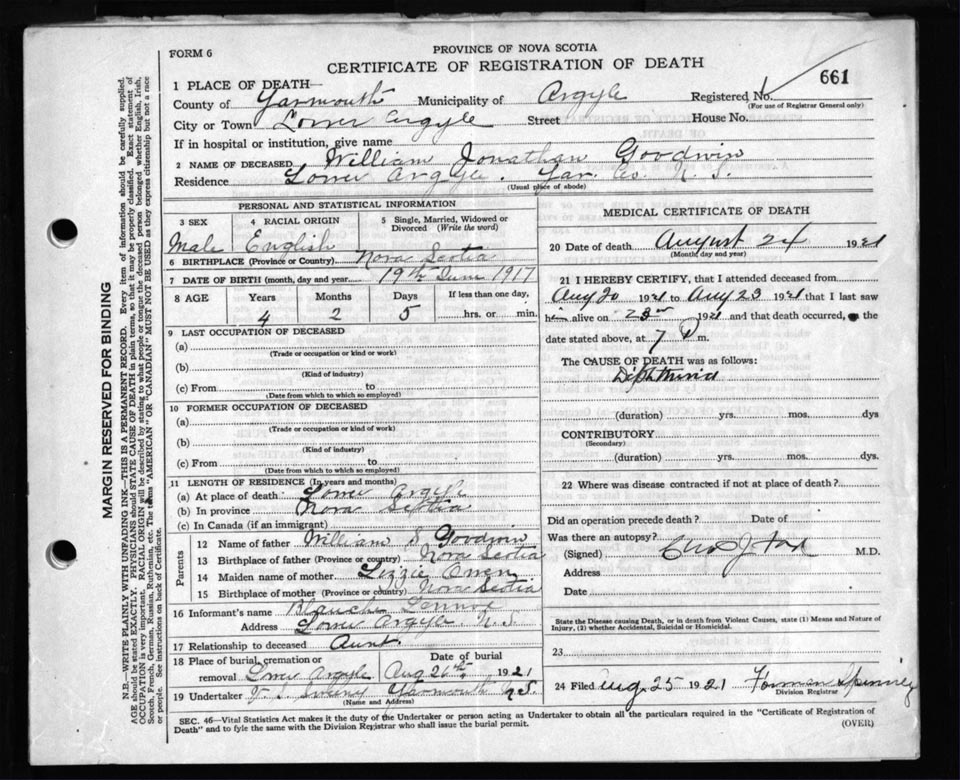 FORM 6
PROVINCE OF NOVA SCOTIA
CERTIFICATE OF REGISTRATION OF DEATH
661
1 PLACE OF DEATH—
County of Yarmouth Municipality of Argyle Registered No.
(For use of Registrar General only)
City or Town Lower Argyle Street House No.
If in hospital or institution, give name
2 NAME OF DECEASED William Jonathan Goodwin
Residence Lower Argyle. Yar. Co. N. S.
(Usual place of abode)
PERSONAL AND STATISTICAL INFORMATION
3 SEX 4 RACIAL ORIGIN 5 Single, Married, Widowed or Divorced (Write the word)
Male English
6 BIRTHPLACE (Province or Country) Nova Scotia
7 DATE OF BIRTH (month, day and year) 19th June 1917
8 AGE Years Months Days If less than one day,
4 2 5 hrs. or min.
9 LAST OCCUPATION OF DECEASED
(a)
(Trade or occupation or kind or work)
(b)
(Kind of industry)
(c) From to
(Date from which to which so employed)
10 FORMER OCCUPATION OF DECEASED
(a)
(Trade or occupation or kind of work)
(b)
(Kind of industry)
(c) From to
(Date from which to which so employed)
11 LENGTH OF RESIDENCE (In years and months)
(a) At place of death Lower Argyle
(b) In province Nova Scotia
(c) In Canada (if an immigrant)
Parents
12 Name of father William S Goodwin
13 Birthplace of father (Province or country) Nova Scotia
14 Maiden name of mother Lizzie Owen
15 Birthplace of mother (Province or country) Nova Scotia
16 Informant's name Blanche Lennox
Address Lower Argyle N.S.
17 Relationship to deceased Aunt
18 Place of burial, cremation or removal Lower Argyle Date of burial Aug 26th 1921
19 Undertaker Yarmouth N.S.
(Name and Address)
MEDICAL CERTIFICATE OF DEATH
20 Date of death August 24 1921
(Month, day and year)
21 I HEREBY CERTIFY, that I attended deceased from
Aug 20 1921 to Aug 23 1921 that I last saw
him alive on 23rd 1921 and that death occurred, on the
date stated above, at 7 P m.
The CAUSE OF DEATH was as follows:
Diphtheria
(duration) yrs. mos. dys
CONTRIBUTORY
(Secondary)
(duration) yrs. mos. dys.
22 Where was disease contracted if not at place of death?
Did an operation precede death? Date of
Was there an autopsy?
(Signed) M.D.
Address
Date
State the Disease causing Death, or in death from Violent Causes, state (1) Means and Nature of Injury, (2) whether Accidental, Suicidal or Homicidal.
23
24 Filed Aug. 25 1921 Forman Spinney
Division Registrar
SEC. 46—Vital Statistics Act makes it the duty of the Undertaker or person acting as Undertaker to obtain all the particulars required in the "Certificate of Registration of
Death" and to fyle the same with the Division Registrar who shall issue the burial permit.
(OVER)
MARGIN RESERVED FOR BINDING
N.B.—WRITE PLAINLY WITH UNFADING INK—THIS IS A PERMANENT RECORD. Every item of information should be carefully supplied.
AGE should be stated EXACTLY. PHYSICIANS should STATE CAUSE OF DEATH in plain terms, so that it may be properly classified. Exact statement of
OCCUPATION is very important. RACIAL ORIGIN will be described by stating to what people or tongue the deceased person belonged whether English, Irish,
Scotch, French, German, Russian, Ruthenian, etc. The terms "AMERICAN" OR "CANADIAN" MUST NOT BE USED as they express citizenship but not a race
or people. See instructions on back of Certificate.